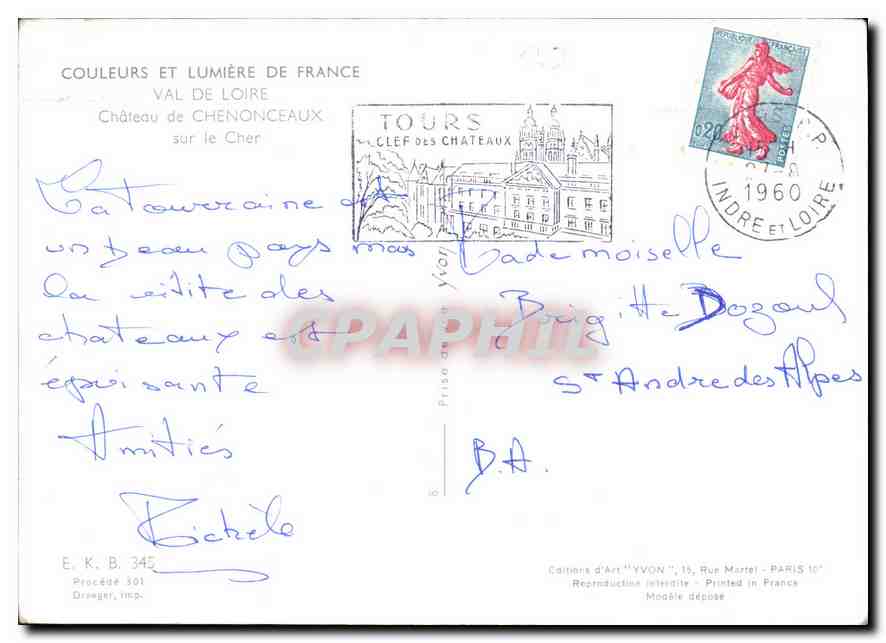 COULEURS ET LUMIÈRE DE FRANCE
VAL DE LOIRE
Château de CHENONCEAUX
sur le Cher
TOURS
CLEF DES CHATEAUX
REPUBLIQUE FRANÇAISE
0,20
POSTES
1960
INDRE ET LOIRE
La Tourraine est
un beau pays mais
la visite des
chateaux est
épuisante
Amitiés
Michèle
Mademoiselle
Brigitte Dozoul
St Andre des Alpes
B.A.
CPAPHIL
E. K. B. 345
Procédé 301
Draeger, imp.
Editions d'Art "YVON", 15, Rue Martel - PARIS 10e
Reproduction interdite - Printed in France
Modèle déposé